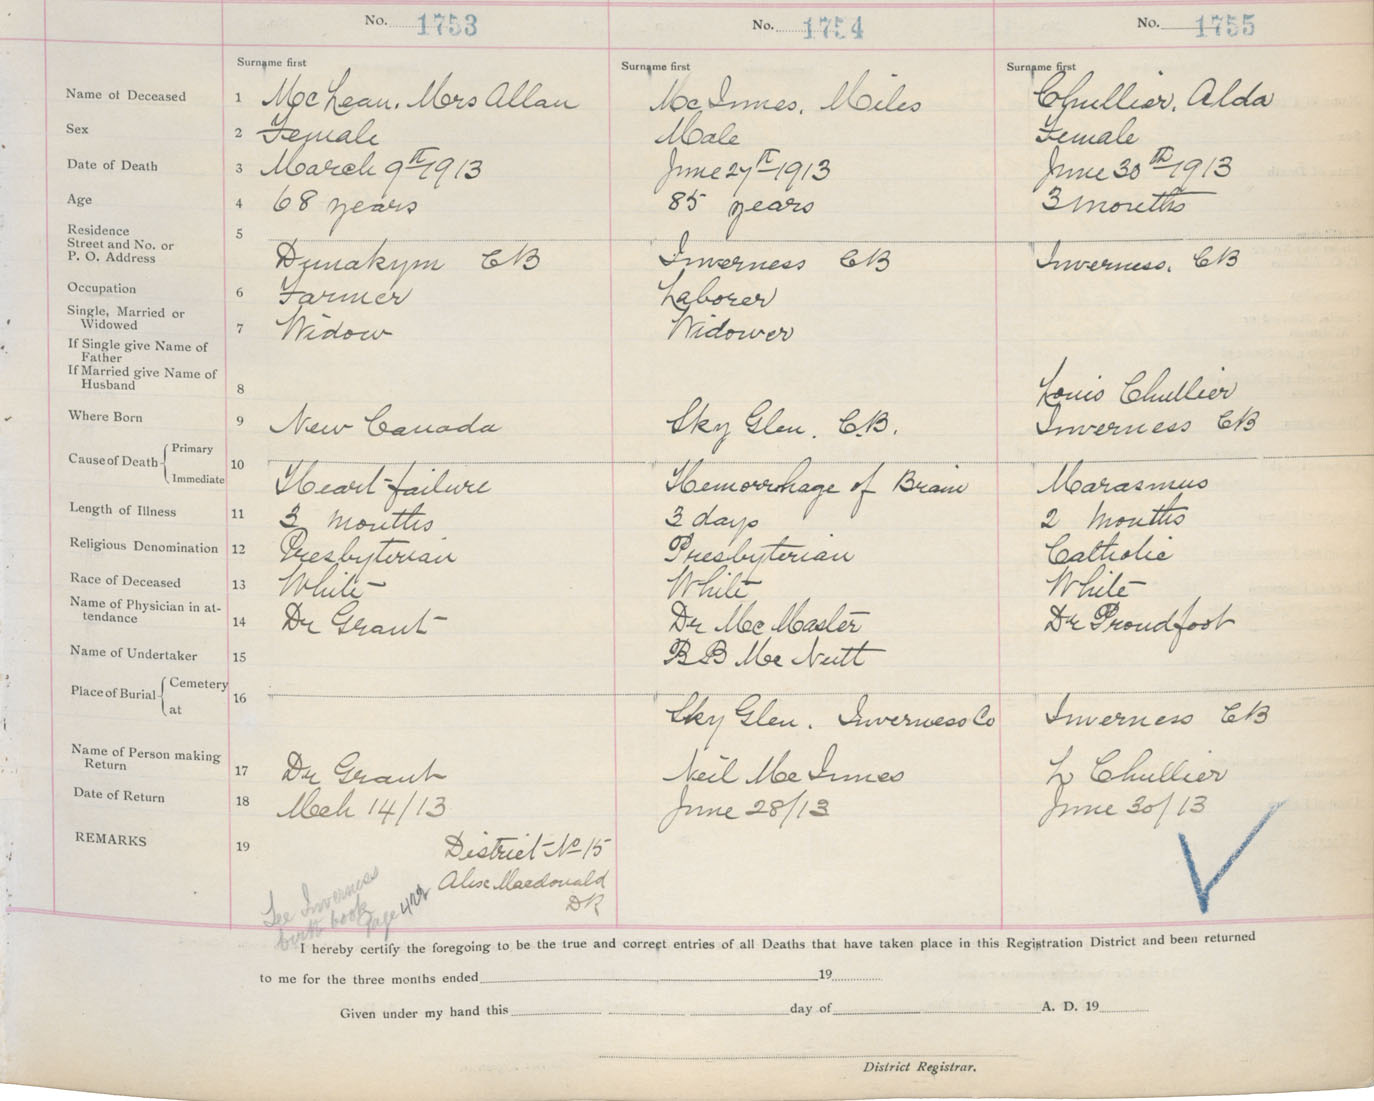 No. 1753 No. 1754 No. 1755
Surname first Surname first Surname first
Name of Deceased 1 McLean, Mrs Allan McInnes, Miles Chullier, Alda
Sex 2 Female Male Female
Date of Death 3 March 9th 1913 June 27th 1913 June 30th 1913
Age 4 68 years 85 years 3 months
Residence
Street and No. or
P. O. Address 5 Dunakym CB Inverness CB Inverness, CB
Occupation 6 Farmer Laborer
Single, Married or
Widowed 7 Widow Widower
If Single give Name of
Father
If Married give Name of
Husband 8 Louis Chullier
Where Born 9 New Canada Sky Glen, C.B. Inverness CB
Cause of Death Primary
Immediate 10 Heart failure Hemorrhage of Brain Marasmus
Length of Illness 11 3 months 3 days 2 months
Religious Denomination 12 Presbyterian Presbyterian Catholic
Race of Deceased 13 White White White
Name of Physician in at-
tendance 14 Dr Grant Dr McMaster Dr Proudfoot
Name of Undertaker 15 BB McNutt
Place of Burial Cemetery
at 16 Sky Glen, Inverness Co Inverness CB
Name of Person making
Return 17 Dr Grant Neil McInnes L Chullier
Date of Return 18 Mch 14/13 June 28/13 June 30/13
REMARKS 19 District No 15
Alex Macdonald
DR
See Inverness
birth book
page 422
I hereby certify the foregoing to be the true and correct entries of all Deaths that have taken place in this Registration District and been returned
to me for the three months ended 19
Given under my hand this day of A. D. 19
District Registrar.